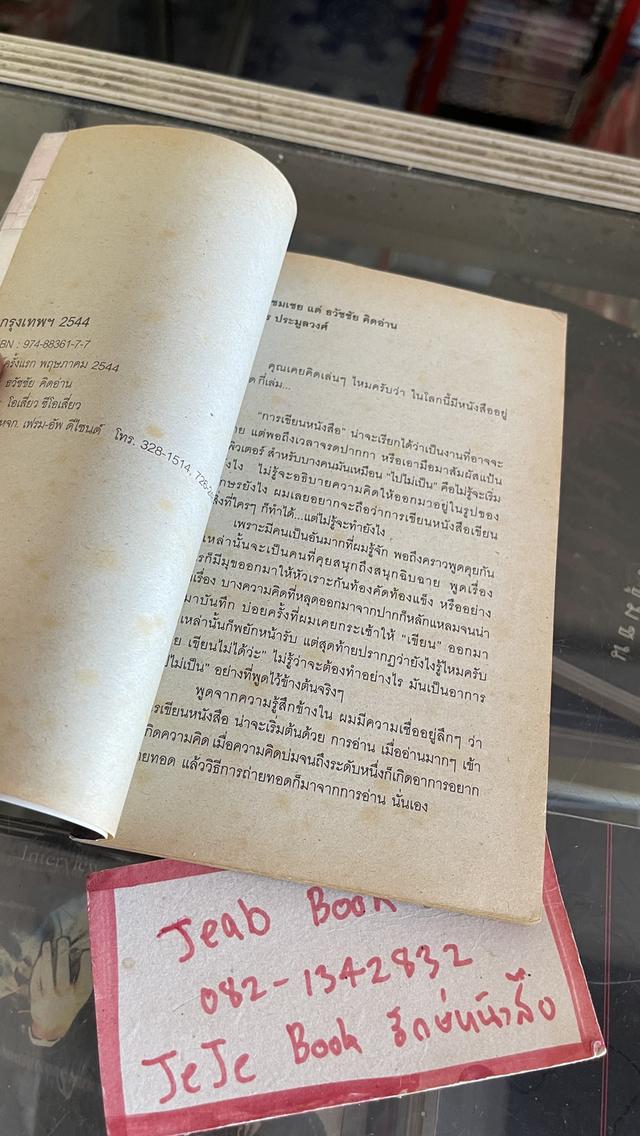 กรุงเทพฯ 2544
BN : 974-88361-7-7
ครั้งแรก พฤษภาคม 2544
ธวัชชัย คิดอ่าน
โอเลี่ยว ซีโอเลี่ยว
หจก. เฟรม-อัพ ดีไซนด์ โทร. 328-1514,
ชมเชย แด่ ธวัชชัย คิดอ่าน
ร ประมูลวงศ์
คุณเคยคิดเล่นๆ ไหมครับว่า ในโลกนี้มีหนังสืออยู่
กี่เล่ม...
"การเขียนหนังสือ" น่าจะเรียกได้ว่าเป็นงานที่อาจจะ
าย แต่พอถึงเวลาจรดปากกา หรือเอามือมาสัมผัสแป้น
พิวเตอร์ สำหรับบางคนมันเหมือน "ไปไม่เป็น" คือไม่รู้จะเริ่ม
ังไง ไม่รู้จะอธิบายความคิดให้ออกมาอยู่ในรูปของ
กษรยังไง ผมเลยอยากจะถือว่าการเขียนหนังสือเขียน
สิ่งที่ใครๆ ก็ทำได้...แต่ไม่รู้จะทำยังไง
เพราะมีคนเป็นอันมากที่ผมรู้จัก พอถึงคราวพูดคุยกัน
เหล่านั้นจะเป็นคนที่คุยสนุกถึงสนุกฉิบฉาย พูดเรื่อง
รก็มีมุขออกมาให้หัวเราะกันท้องคัดท้องแข็ง หรืออย่าง
เรื่อง บางความคิดที่หลุดออกมาจากปากก็หลักแหลมจนน่า
มาบันทึก บ่อยครั้งที่ผมเคยกระเซ้าให้ "เขียน" ออกมา
เหล่านั้นก็พยักหน้ารับ แต่สุดท้ายปรากฏว่ายังไงรู้ไหมครับ
ย เขียนไม่ได้ว่ะ" ไม่รู้ว่าจะต้องทำอย่างไร มันเป็นอาการ
ปไม่เป็น" อย่างที่พูดไว้ข้างต้นจริงๆ
พูดจากความรู้สึกข้างใน ผมมีความเชื่ออยู่ลึกๆ ว่า
รเขียนหนังสือ น่าจะเริ่มต้นด้วย การอ่าน เมื่ออ่านมากๆ เข้า
กิดความคิด เมื่อความคิดบ่มจนถึงระดับหนึ่งก็เกิดอาการอยาก
ายทอด แล้ววิธีการถ่ายทอดก็มาจากการอ่าน นั่นเอง
Interview
ชุมชน
Jeab Book
082-1342832
JeJe Book รักษ์หนังสือ